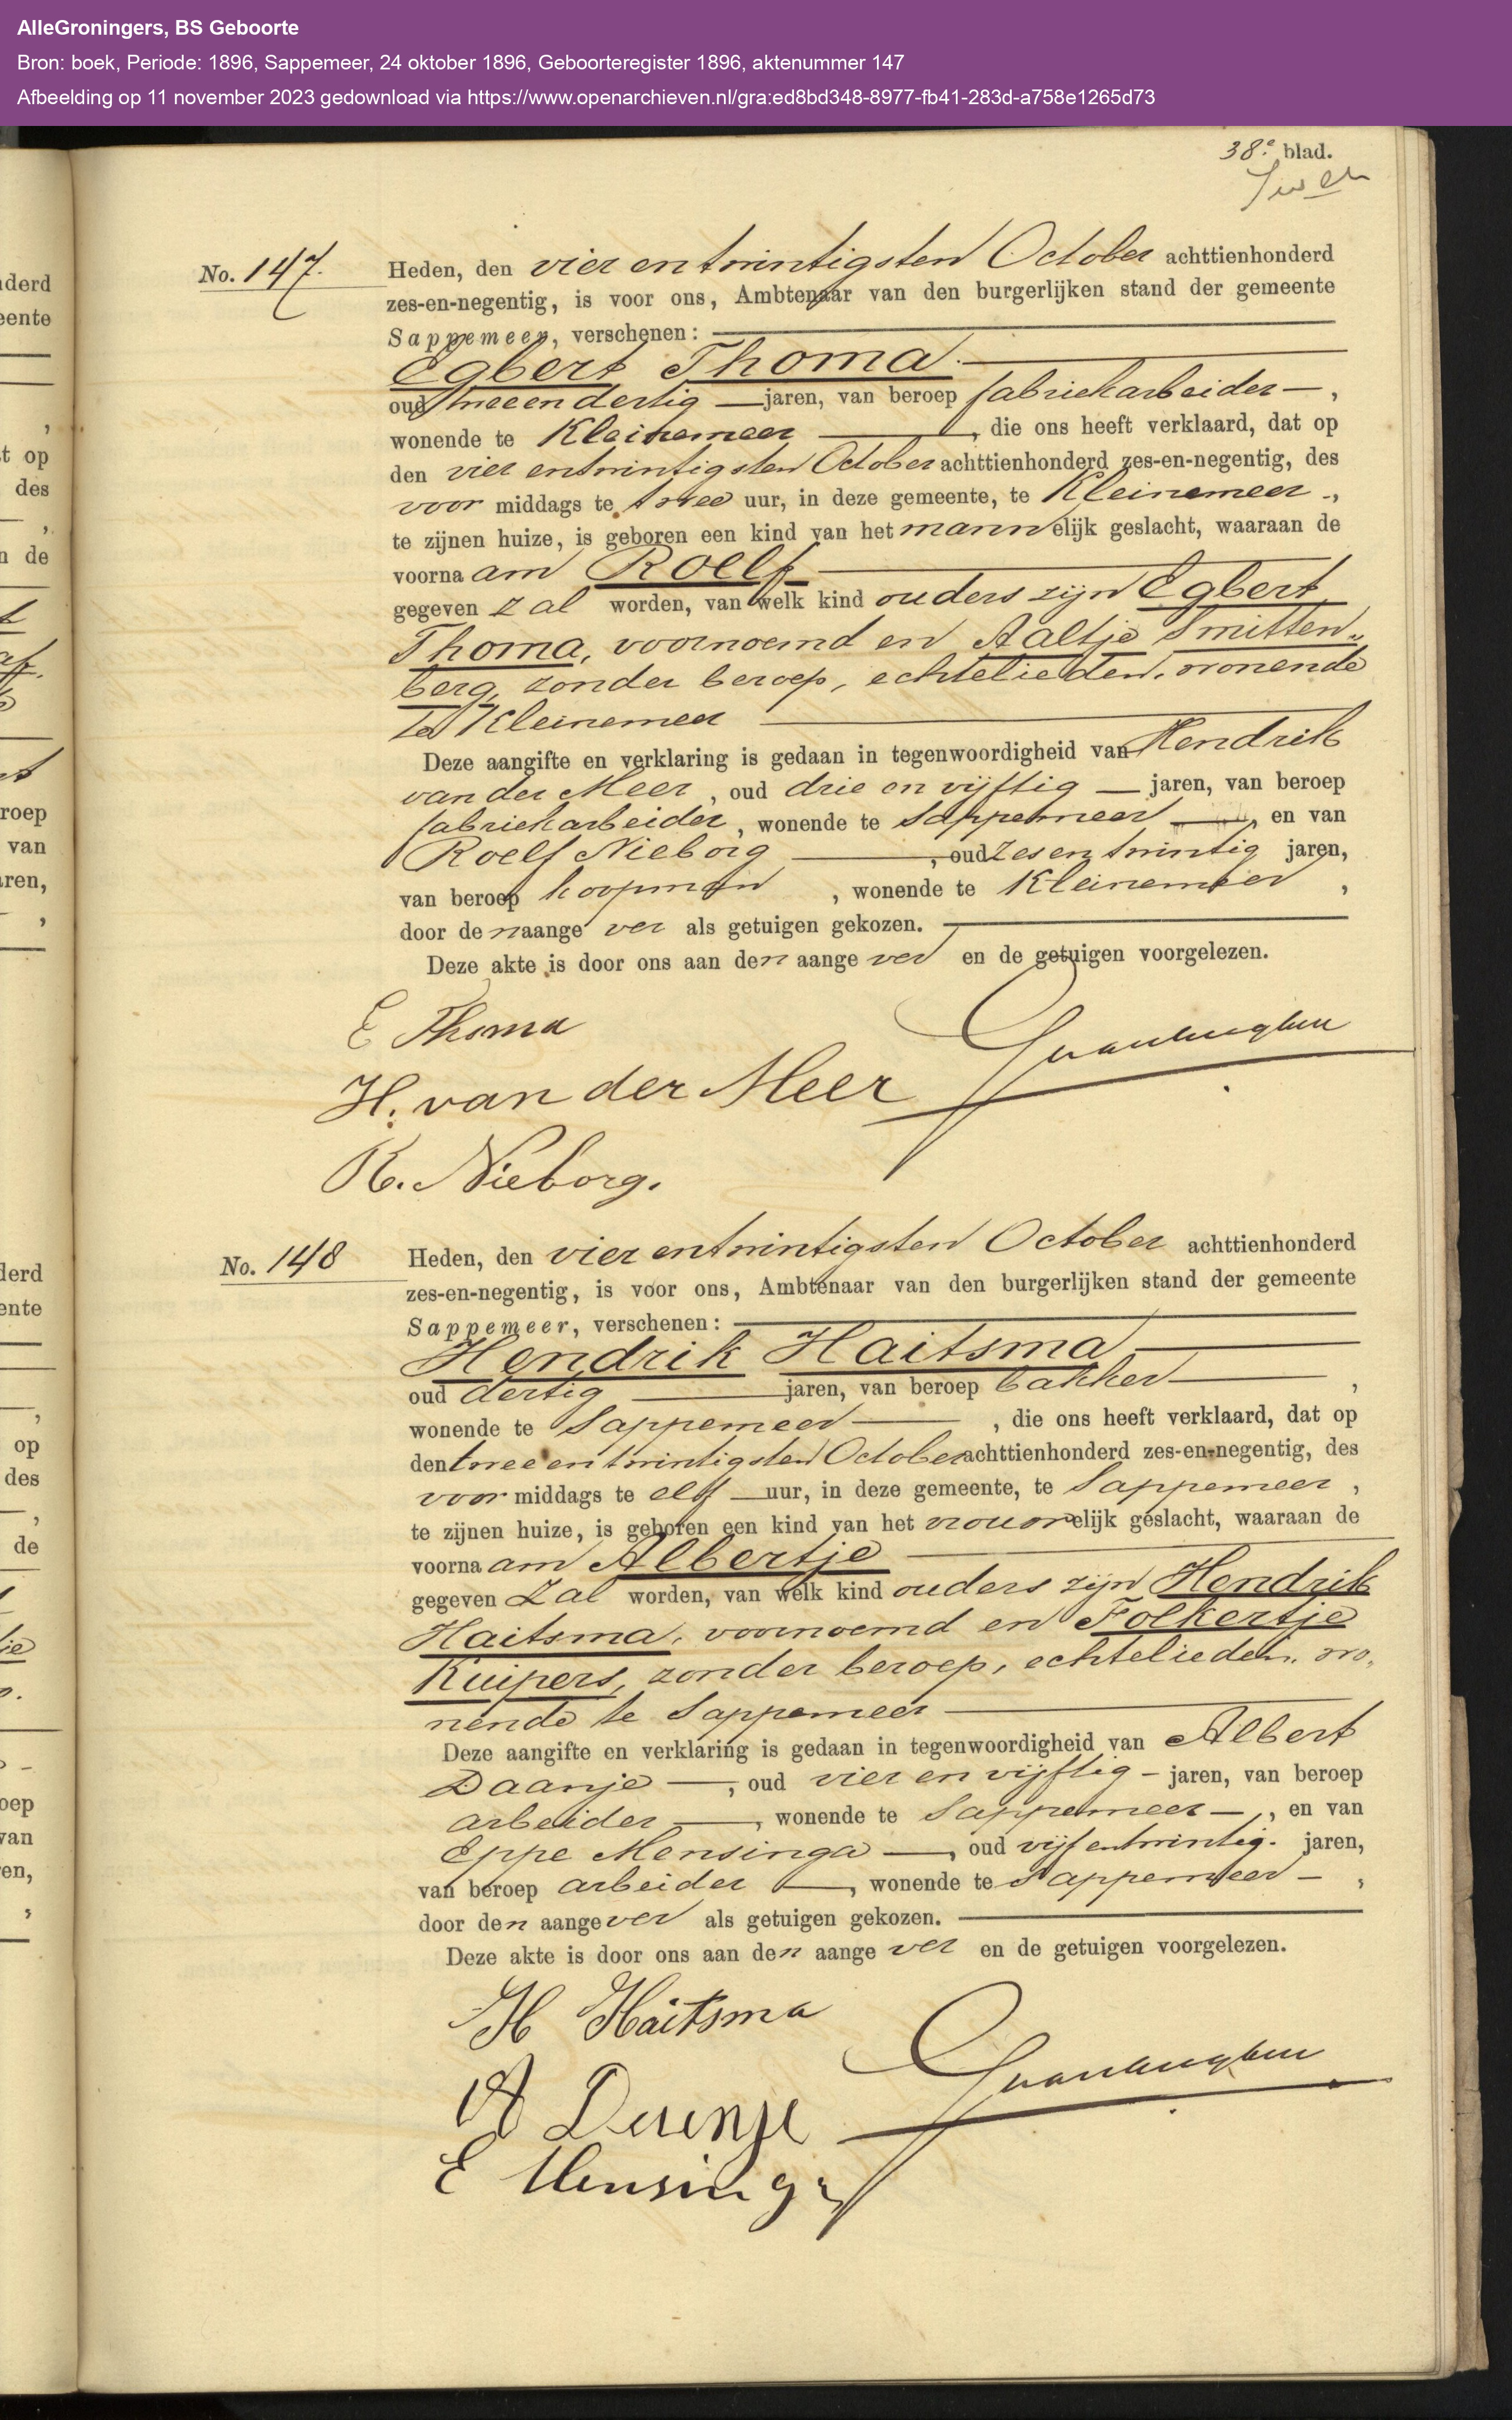 AlleGroningers, BS Geboorte
Bron: boek, Periode: 1896, Sappemeer, 24 oktober 1896, Geboorteregister 1896, aktenummer 147
Afbeelding op 11 november 2023 gedownload via https://www.openarchieven.nl/gra:ed8bd348-8977-fb41-283d-a758e1265d73
38e blad.
No. 147. Heden, den vier en twintigsten October achttienhonderd
zes-en-negentig, is voor ons, Ambtenaar van den burgerlijken stand der gemeente
Sappemeer, verschenen:
Egbert Thoma.
oud twee en dertig jaren, van beroep fabriekarbeider,
wonende te Kleinemeer, die ons heeft verklaard, dat op
den vier en twintigsten October achttienhonderd zes-en-negentig, des
voor middags te twee uur, in deze gemeente, te Kleinemeer,
te zijnen huize, is geboren een kind van het mannelijk geslacht, waaraan de
voornaam Roelf
gegeven zal worden, van welk kind ouders zijn Egbert
Thoma, voornoemd en Aaltje Smitten„
berg, zonder beroep, echtelieden, wonende
te Kleinemeer
Deze aangifte en verklaring is gedaan in tegenwoordigheid van Hendrik
van der Meer, oud drie en vijftig jaren, van beroep
fabriekarbeider, wonende te Sappemeer, en van
Roelf Nieborg, oud zes en twintig jaren,
van beroep koopman, wonende te Kleinemeer,
door den aangever als getuigen gekozen.
Deze akte is door ons aan den aangever en de getuigen voorgelezen.
E Thoma
H. van der Meer
R. Nieborg.
No. 148 Heden, den vier en twintigsten October achttienhonderd
zes-en-negentig, is voor ons, Ambtenaar van den burgerlijken stand der gemeente
Sappemeer, verschenen:
Hendrik Haitsma
oud dertig jaren, van beroep bakker,
wonende te Sappemeer, die ons heeft verklaard, dat op
den twee en twintigsten October achttienhonderd zes-en-negentig, des
voor middags te elf uur, in deze gemeente, te Sappemeer,
te zijnen huize, is geboren een kind van het vrouwelijk geslacht, waaraan de
voornaam Albertje
gegeven zal worden, van welk kind ouders zijn Hendrik
Haitsma, voornoemd en Folkertje
Kuipers, zonder beroep, echtelieden, wo„
nende te Sappemeer
Deze aangifte en verklaring is gedaan in tegenwoordigheid van Albert
Daanje, oud vier en vijftig jaren, van beroep
arbeider, wonende te Sappemeer, en van
Eppe Mensinga, oud vijf en twintig. jaren,
van beroep arbeider, wonende te Sappemeer,
door den aangever als getuigen gekozen.
Deze akte is door ons aan den aangever en de getuigen voorgelezen.
H Haitsma
A Derenje
E Mensinga